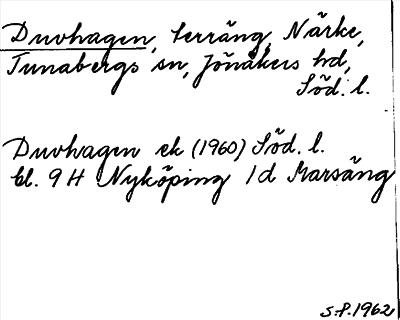 Duvhagen, terräng, Närke,
Tunabergs sn, Jönåkers hd,
Söd. l.
Duvhagen ek (1960) Söd. l.
bl. 9 H Nyköping 1d Marsäng
S.P. 1962